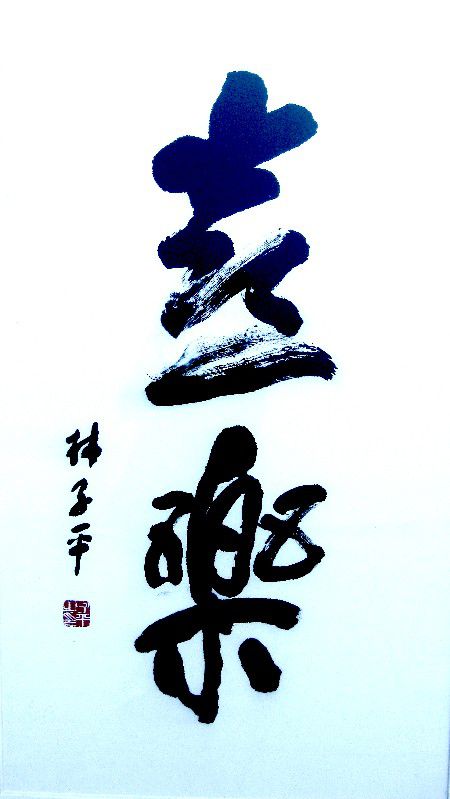 喜樂
林子平